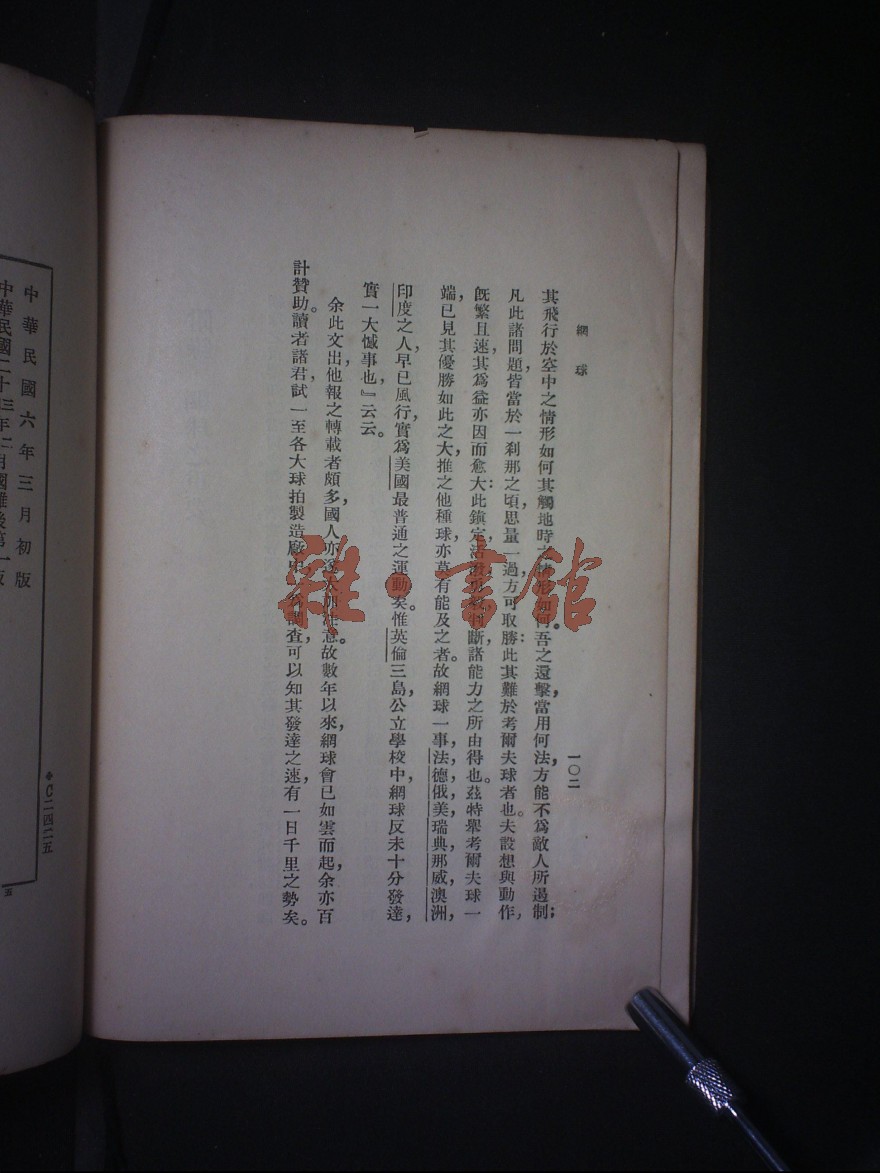 網球
一〇二
其飛行於空中之情形如何其觸地時之情形如何。吾之還擊,當用何法,方能不爲敵人所遏制;
凡此諸問題,皆當於一刹那之頃,思量一過方可取勝:此其難於考爾夫球者也。夫設想與動作,
旣繁且速,其爲益亦因而愈大:此鎭定活潑判斷諸能力之所由得也。茲特舉考爾夫球一
端,已見其優勝如此之大,推之他種球,亦莫有能及之者。故網球一事,法,德,俄,美,瑞典,那威,澳洲,
印度之人早已風行,實爲美國最普通之運動矣。惟英倫三島,公立學校中,網球反未十分發達,
實一大憾事也,』云云。
余此文出,他報之轉載者頗多,國人亦遂大加注意。故數年以來,網球會已如雲而起,余亦百
計贊助。讀者諸君,試一至各大球拍製造廠中,調查,可以知其發達之速,有一日千里之勢矣。
中華民國六年三月初版
中華民國二十三年二月國難後第一版
◆C二四二五
五
雜·書館